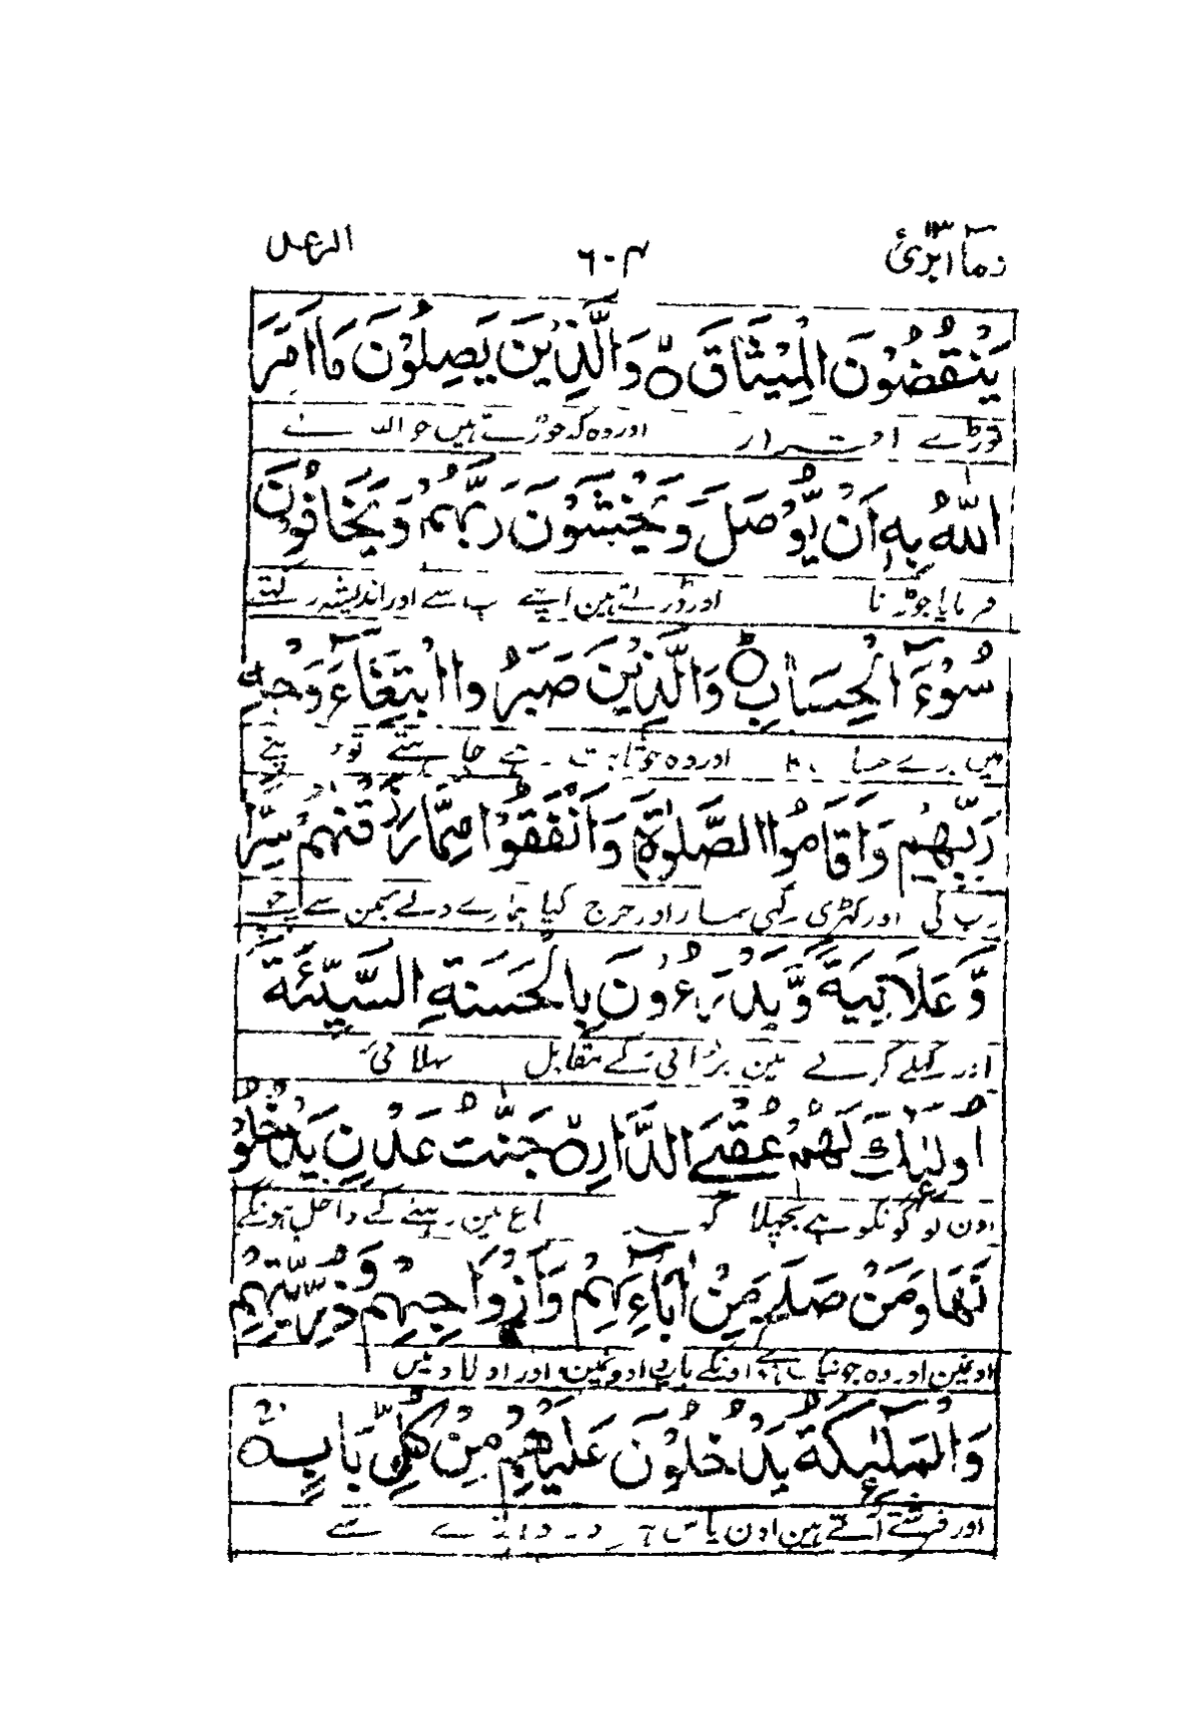 وما ابرئ ۱۳ ۶۰۴ الرعد
يَنْقُضُوْنَ الْمِيْثَاقَ ۙ وَالَّذِيْنَ يَصِلُوْنَ مَا اَمَرَ
توڑتے اقرار اور وہ کہ جوڑتے ہیں جو اللہ نے
اللّٰهُ بِهٖ اَنْ يُّوْصَلَ وَيَخْشَوْنَ رَبَّهُمْ وَيَخَافُوْنَ
فرمایا جوڑنا اور ڈرتے ہین اپنے رب سے اور اندیشہ رکھتے
سُوْٓءَ الْحِسَابِ ؕ وَالَّذِيْنَ صَبَرُوا ابْتِغَآءَ وَجْهِ
ہیں برے حساب کا اور وہ جو ثابت رہے چاہتے توجہ اپنے
رَبِّهِمْ وَاَقَامُوا الصَّلٰوةَ وَاَنْفَقُوْا مِمَّا رَزَقْنٰهُمْ سِرًّا
رب کی اور کھڑی رکھی نماز اور خرچ کیا ہمارے دئے مین سے چھپے
وَّعَلَانِيَةً وَّيَدْرَءُوْنَ بِالْحَسَنَةِ السَّيِّئَةَ
اور کھلے کرتے ہین برائی کے مقابل بھلائی
اُولٰٓئِكَ لَهُمْ عُقْبَى الدَّارِ ۙ جَنّٰتُ عَدْنٍ يَّدْخُلُوْ
اون لوگونکو ہے پچھلا گھر باغ ہین رہنے کے داخل ہونگے
نَهَا وَمَنْ صَلَحَ مِنْ اٰبَآئِهِمْ وَاَزْوَاجِهِمْ وَذُرِّيّٰتِهِمْ
اونمین اور وہ جو نیک ہوئے اونکے باپ اور اولاد میں
وَالْمَلٰٓئِكَةُ يَدْخُلُوْنَ عَلَيْهِمْ مِنْ كُلِّ بَابٍ ۚ
اور فرشتے آتے ہین اون پاس ہر دروازے سے